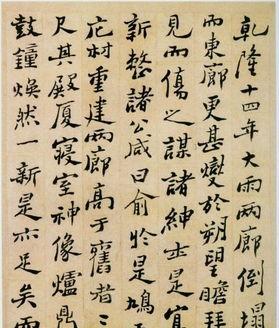 乾隆十四年大雨兩廊倒塌
而東廊更甚爕於朔望瞻拜
見而傷之謀諸紳士是宜
新整諸公咸曰俞於是鳩
庀材重建兩廊高于舊者二
尺其殿廈寢室神像爐鼎
鼓鐘煥然一新是亦足矣而